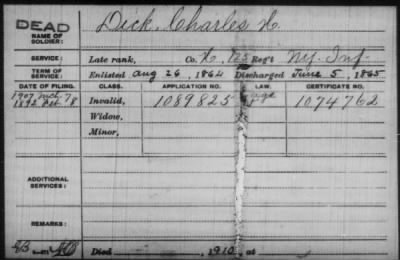 DEAD Dick, Charles H.
NAME OF SOLDIER:
SERVICE: Late rank, Co. H, 125 Reg't N.Y. Inf
TERM OF SERVICE: Enlisted Aug 26, 1862 Discharged June 5, 1865
DATE OF FILING. CLASS. APPLICATION NO. LAW. CERTIFICATE NO.
1907 Mch 7 Age
1892 8 Invalid, 1089825 1074762
Widow,
Minor,
ADDITIONAL SERVICES:
REMARKS:
Died, 1910, at